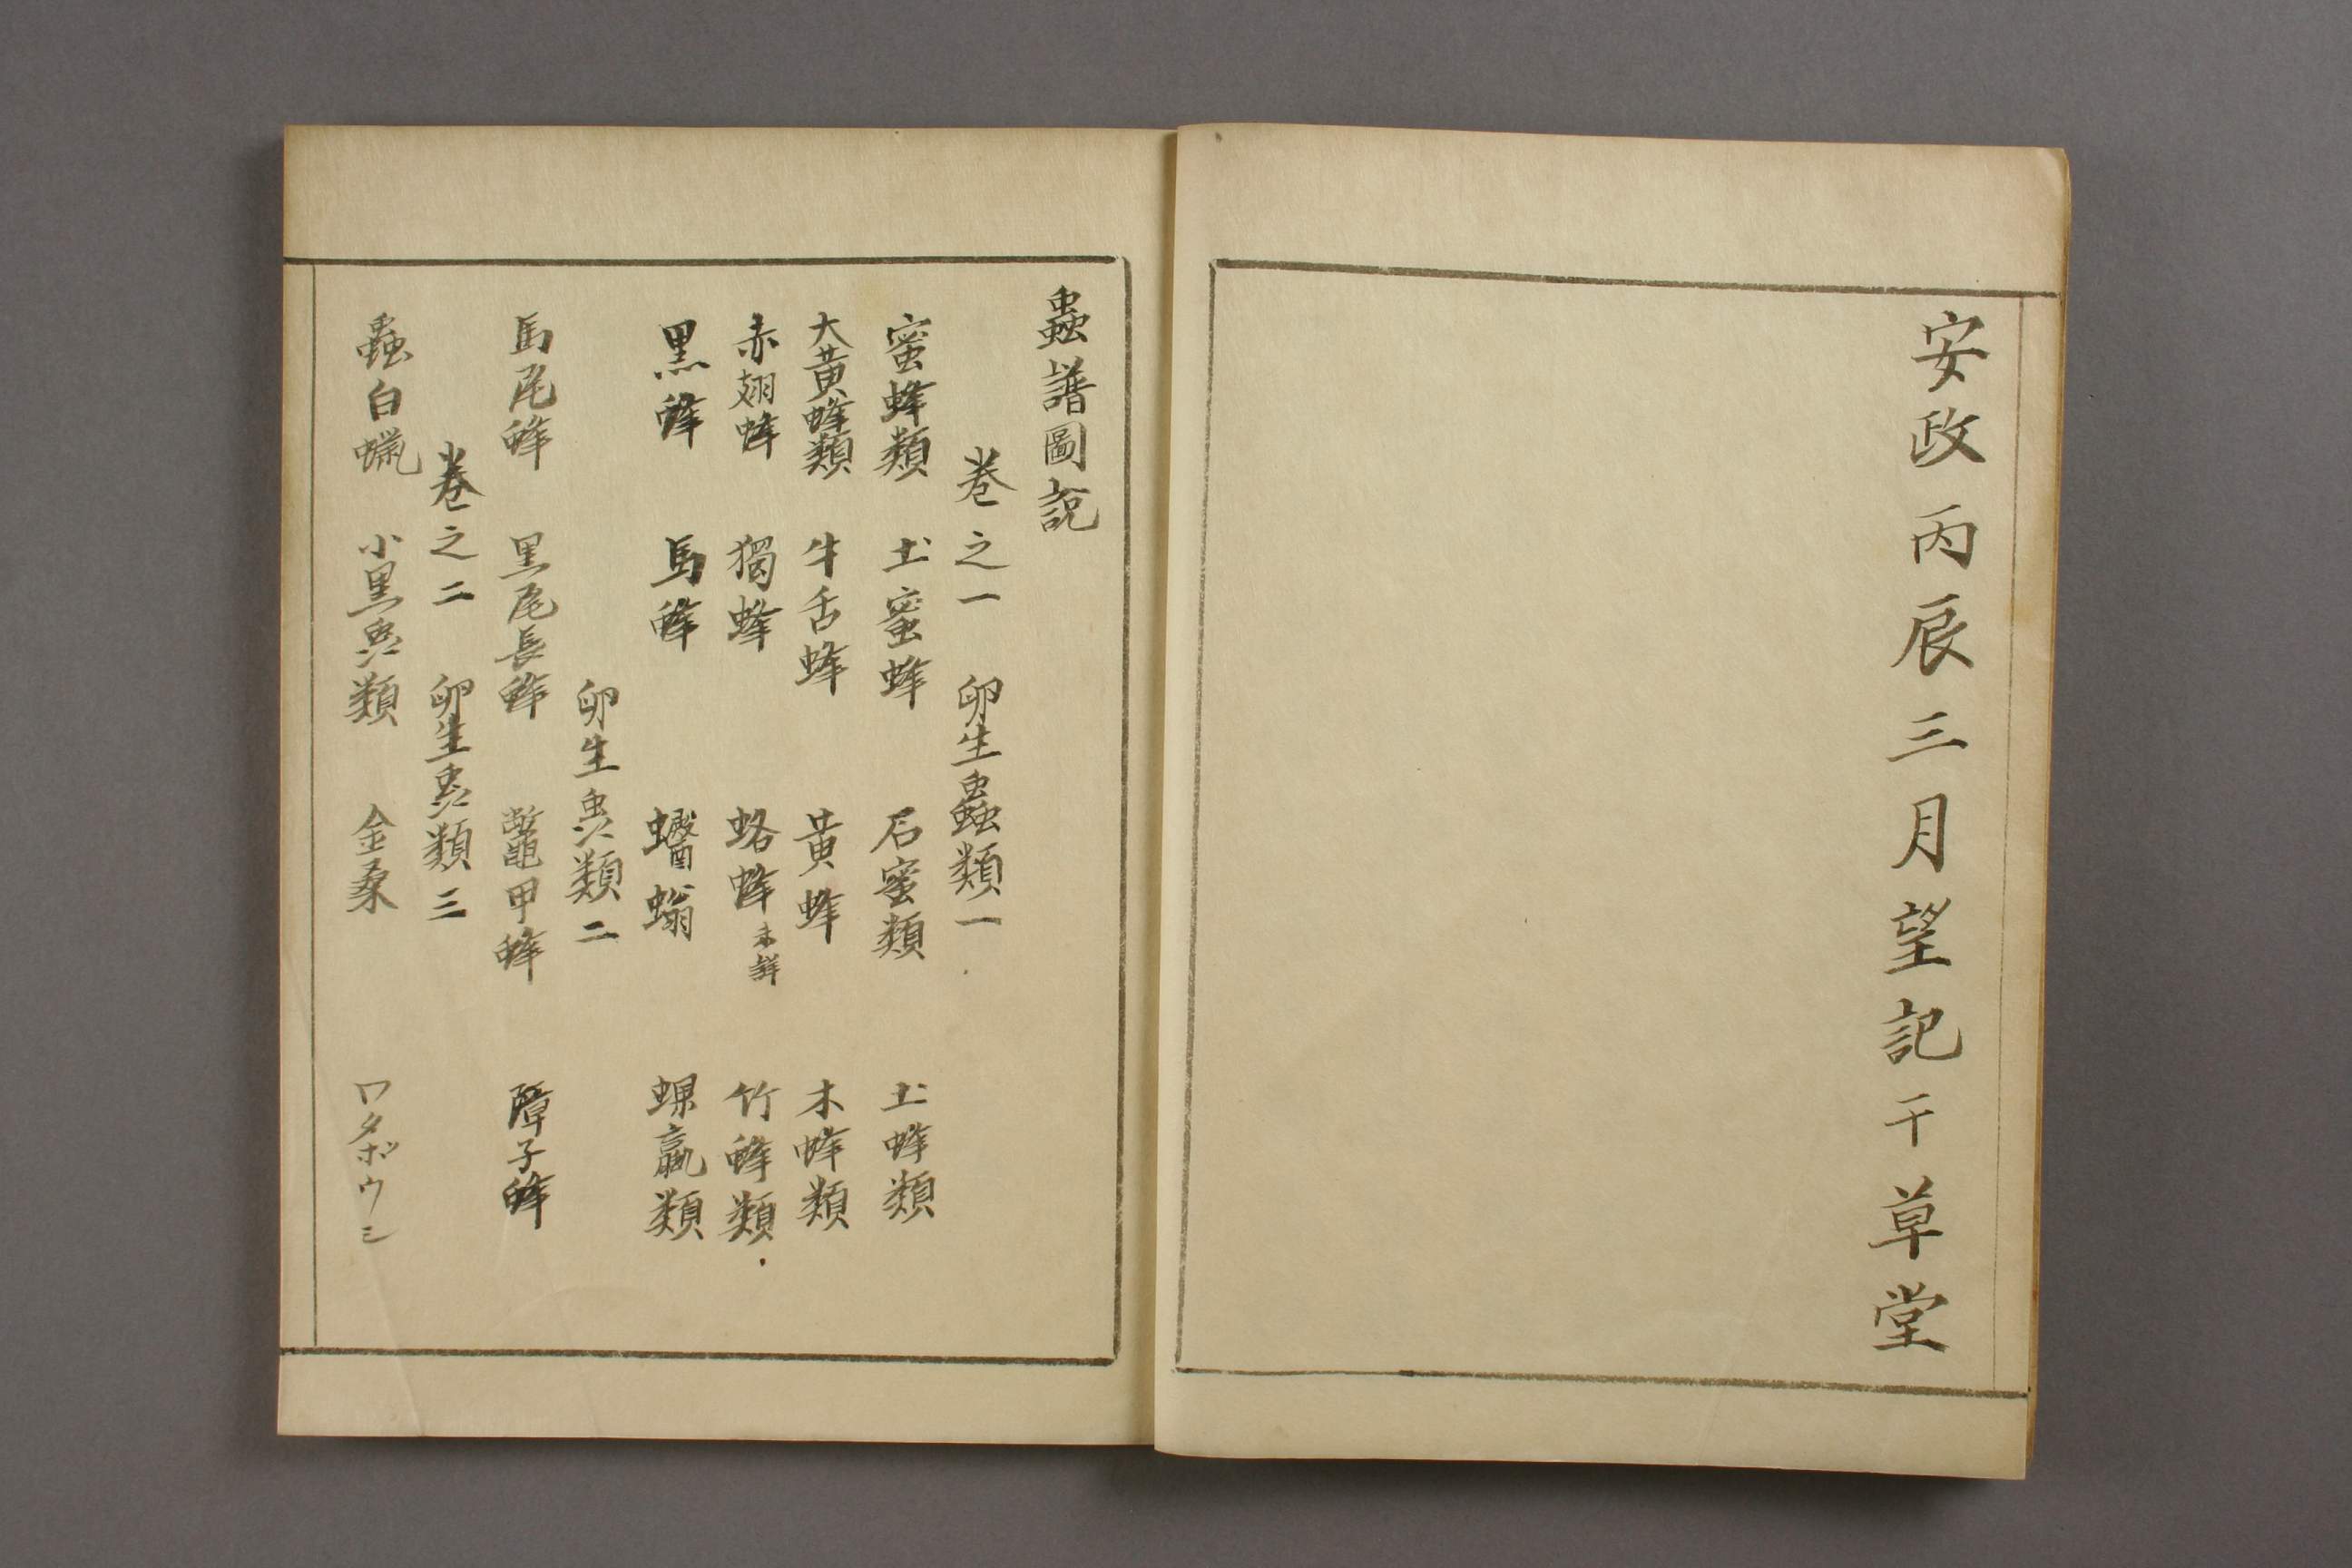 安政丙辰三月望記于草堂
蟲譜圖説
巻之一 卵生蟲類一
蜜蜂類 土蜜蜂 石蜜類 土蜂類
大黄蜂類 牛舌蜂 黄蜂 木蜂類
赤翅蜂 獨蜂 蛒蜂 未詳 竹蜂類
黒蜂 馬蜂 蠮螉 蜾蠃類
卵生蟲類二
馬尾蜂 黒尾長蜂 鼈甲蜂 障子蜂
巻之二 卵生蟲類三
蟲白蝋 小黒蟲類 金桑 ワタボウシ